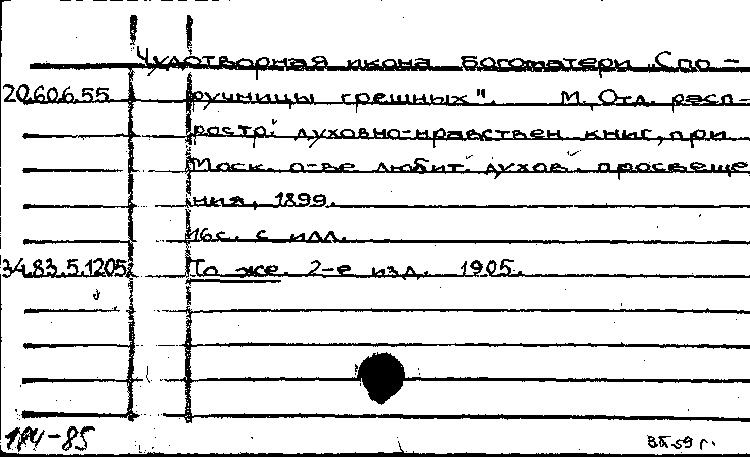 Чудотворная икона Богоматери „Спо-
20.60.6.55 ручницы грешных". М., Отд. расп-
ростр. духовно-нравствен. книг, при
Моск. о-ве любит. духов. просвеще
ния, 1899.
16 с. с илл.
34.83.5.1205 То же. 2-е изд. 1905.
184-85
59 г.